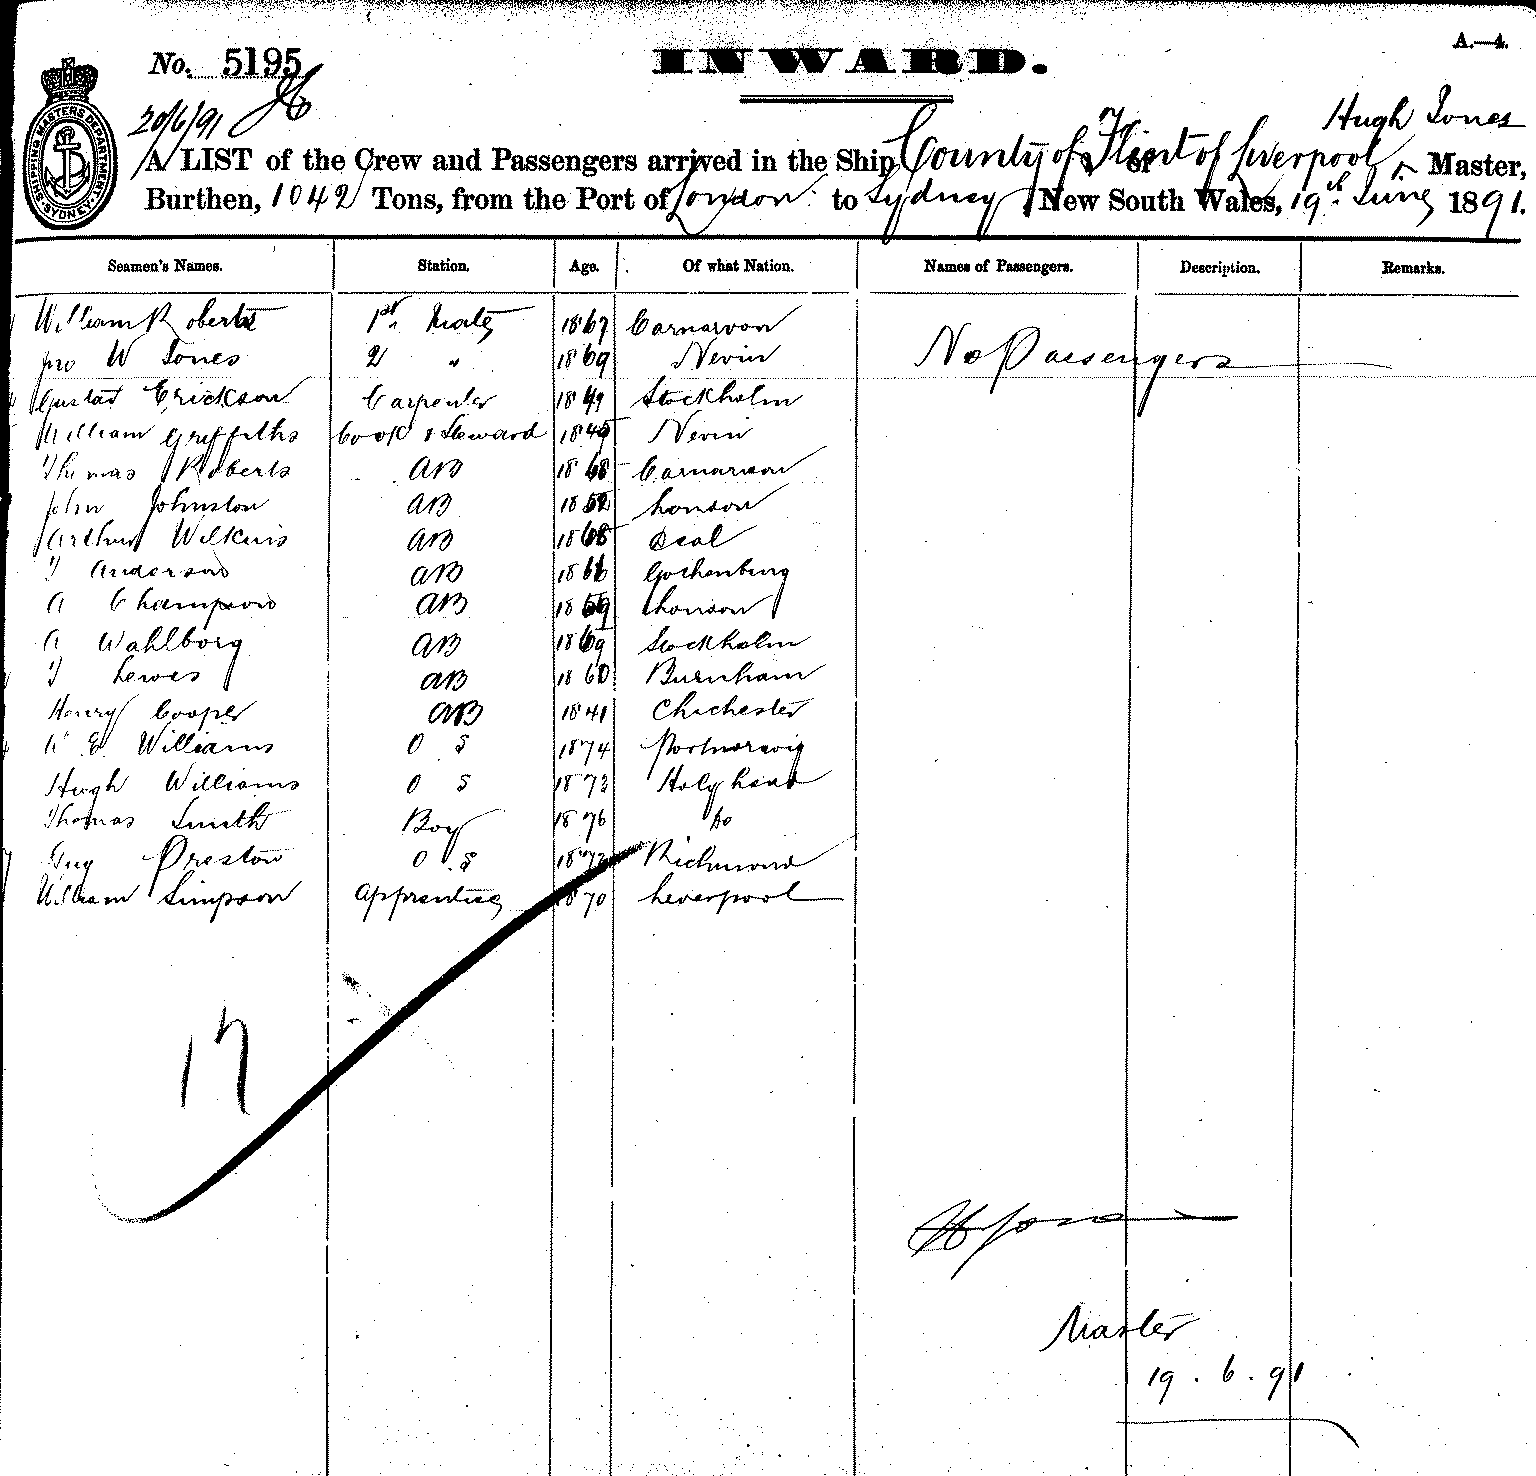 A.—4.
No. 5195
INWARD.
20/6/91
Hugh Jones
A LIST of the Crew and Passengers arrived in the Ship County of Flint of Liverpool, Master,
Burthen, 1042 Tons, from the Port of London to Sydney, New South Wales, 19th June 1891.
SHIPPING MASTERS DEPARTMENT SYDNEY
Seamen's Names. Station. Age. Of what Nation. Names of Passengers. Description. Remarks.
William Roberts 1st Mate 1867 Carnarvon
W Jones 2 " 1869 Nevin No Passengers
Gustaf Erickson Carpenter 1849 Stockholm
William Griffiths Cook & Steward 1849 Nevin
Thomas Roberts AB 1868 Carnarvon
John Johnston AB 1852 London
Arthur Wilkins AB 1868 Deal
T Anderson AB 1866 Gothenburg
A Champion AB 1859 London
A Wahlborg AB 1869 Stockholm
T Lewes AB 1860 Burnham
Henry Cooper AB 1841 Chichester
E Williams O S 1874 Portnorwig
Hugh Williams O S 1873 Holyhead
Thomas Smith Boy 1876 Do
Guy Preston O S 1873 Richmond
William Simpson Apprentice 1870 Liverpool
17
H Jones
Master
19.6.91